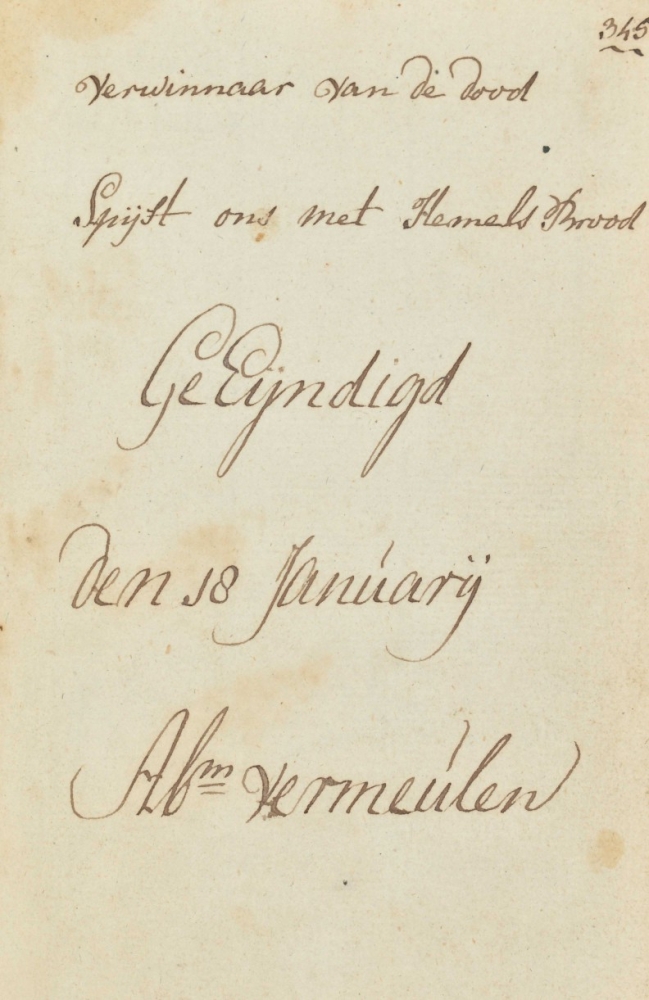 345
Verwinnaar van de dood
Spijst ons met Hemels Brood
GeEijndigd
den 18 Januarij
Abm Vermeulen